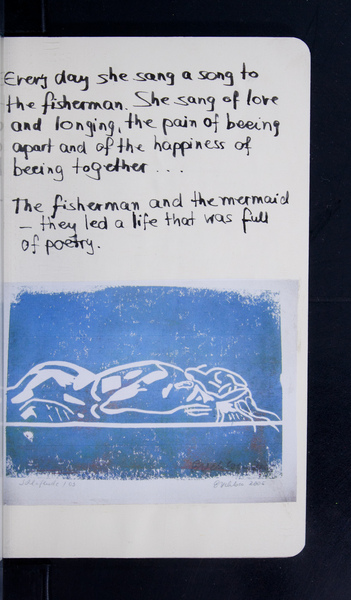 Every day she sang a song to
the fisherman. She sang of love
and longing, the pain of beeing
apart and of the happiness of
beeing together ...
The fisherman and the mermaid
– they led a life that was full
of poetry.